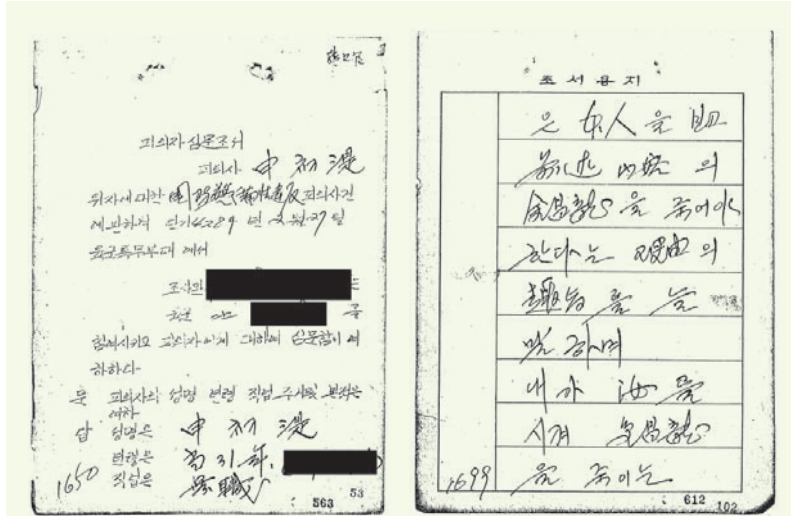 피의자심문조서
피의자 申初湜
위자에 대한 피의사건
에 관하여 단기4289년 2월27일
육군특무부대에서
참여시키고 피의자에게 대하여 심문함이 여
하하다
문 피의자의 성명 연령 직업 주거 및 본적은
여하
답 성명은 申初湜
연령은 当31年
직업은 無職
1650
563 53
조서용지
은 女人을 即
前述 内容의
金昌龍을 죽여야
한다는 理由의
趣旨를 늘
말하며
내가 汝를
시켜 金昌龍
을 죽이는
1699
612 102